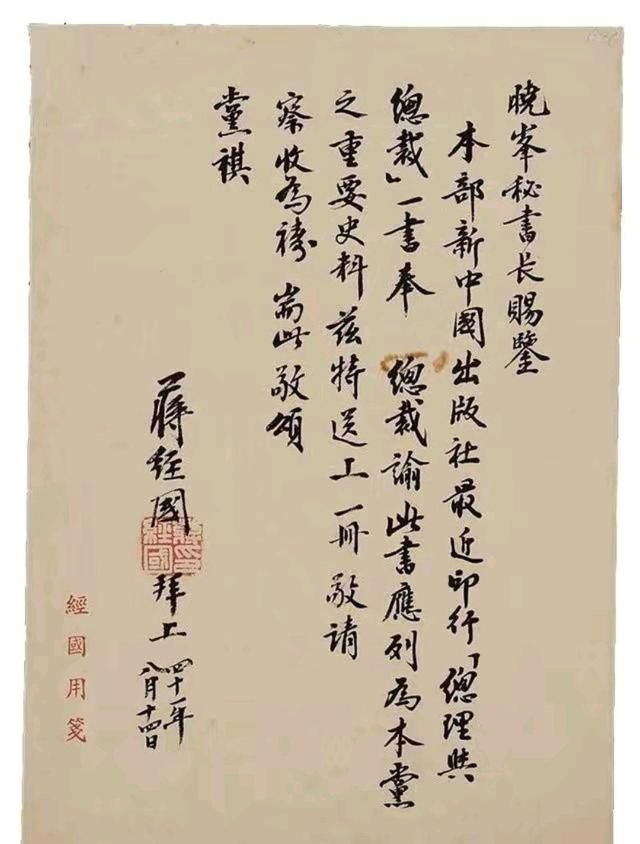 曉峯秘書長賜鑒
本部新中國出版社最近印行「總理與
總裁」一書奉 總裁諭此書應列為本黨
之重要史料茲特送上一冊敬請
察收為禱 耑此敬頌
黨祺
蔣經國 拜上 四十一年
八月十四日
經國用箋